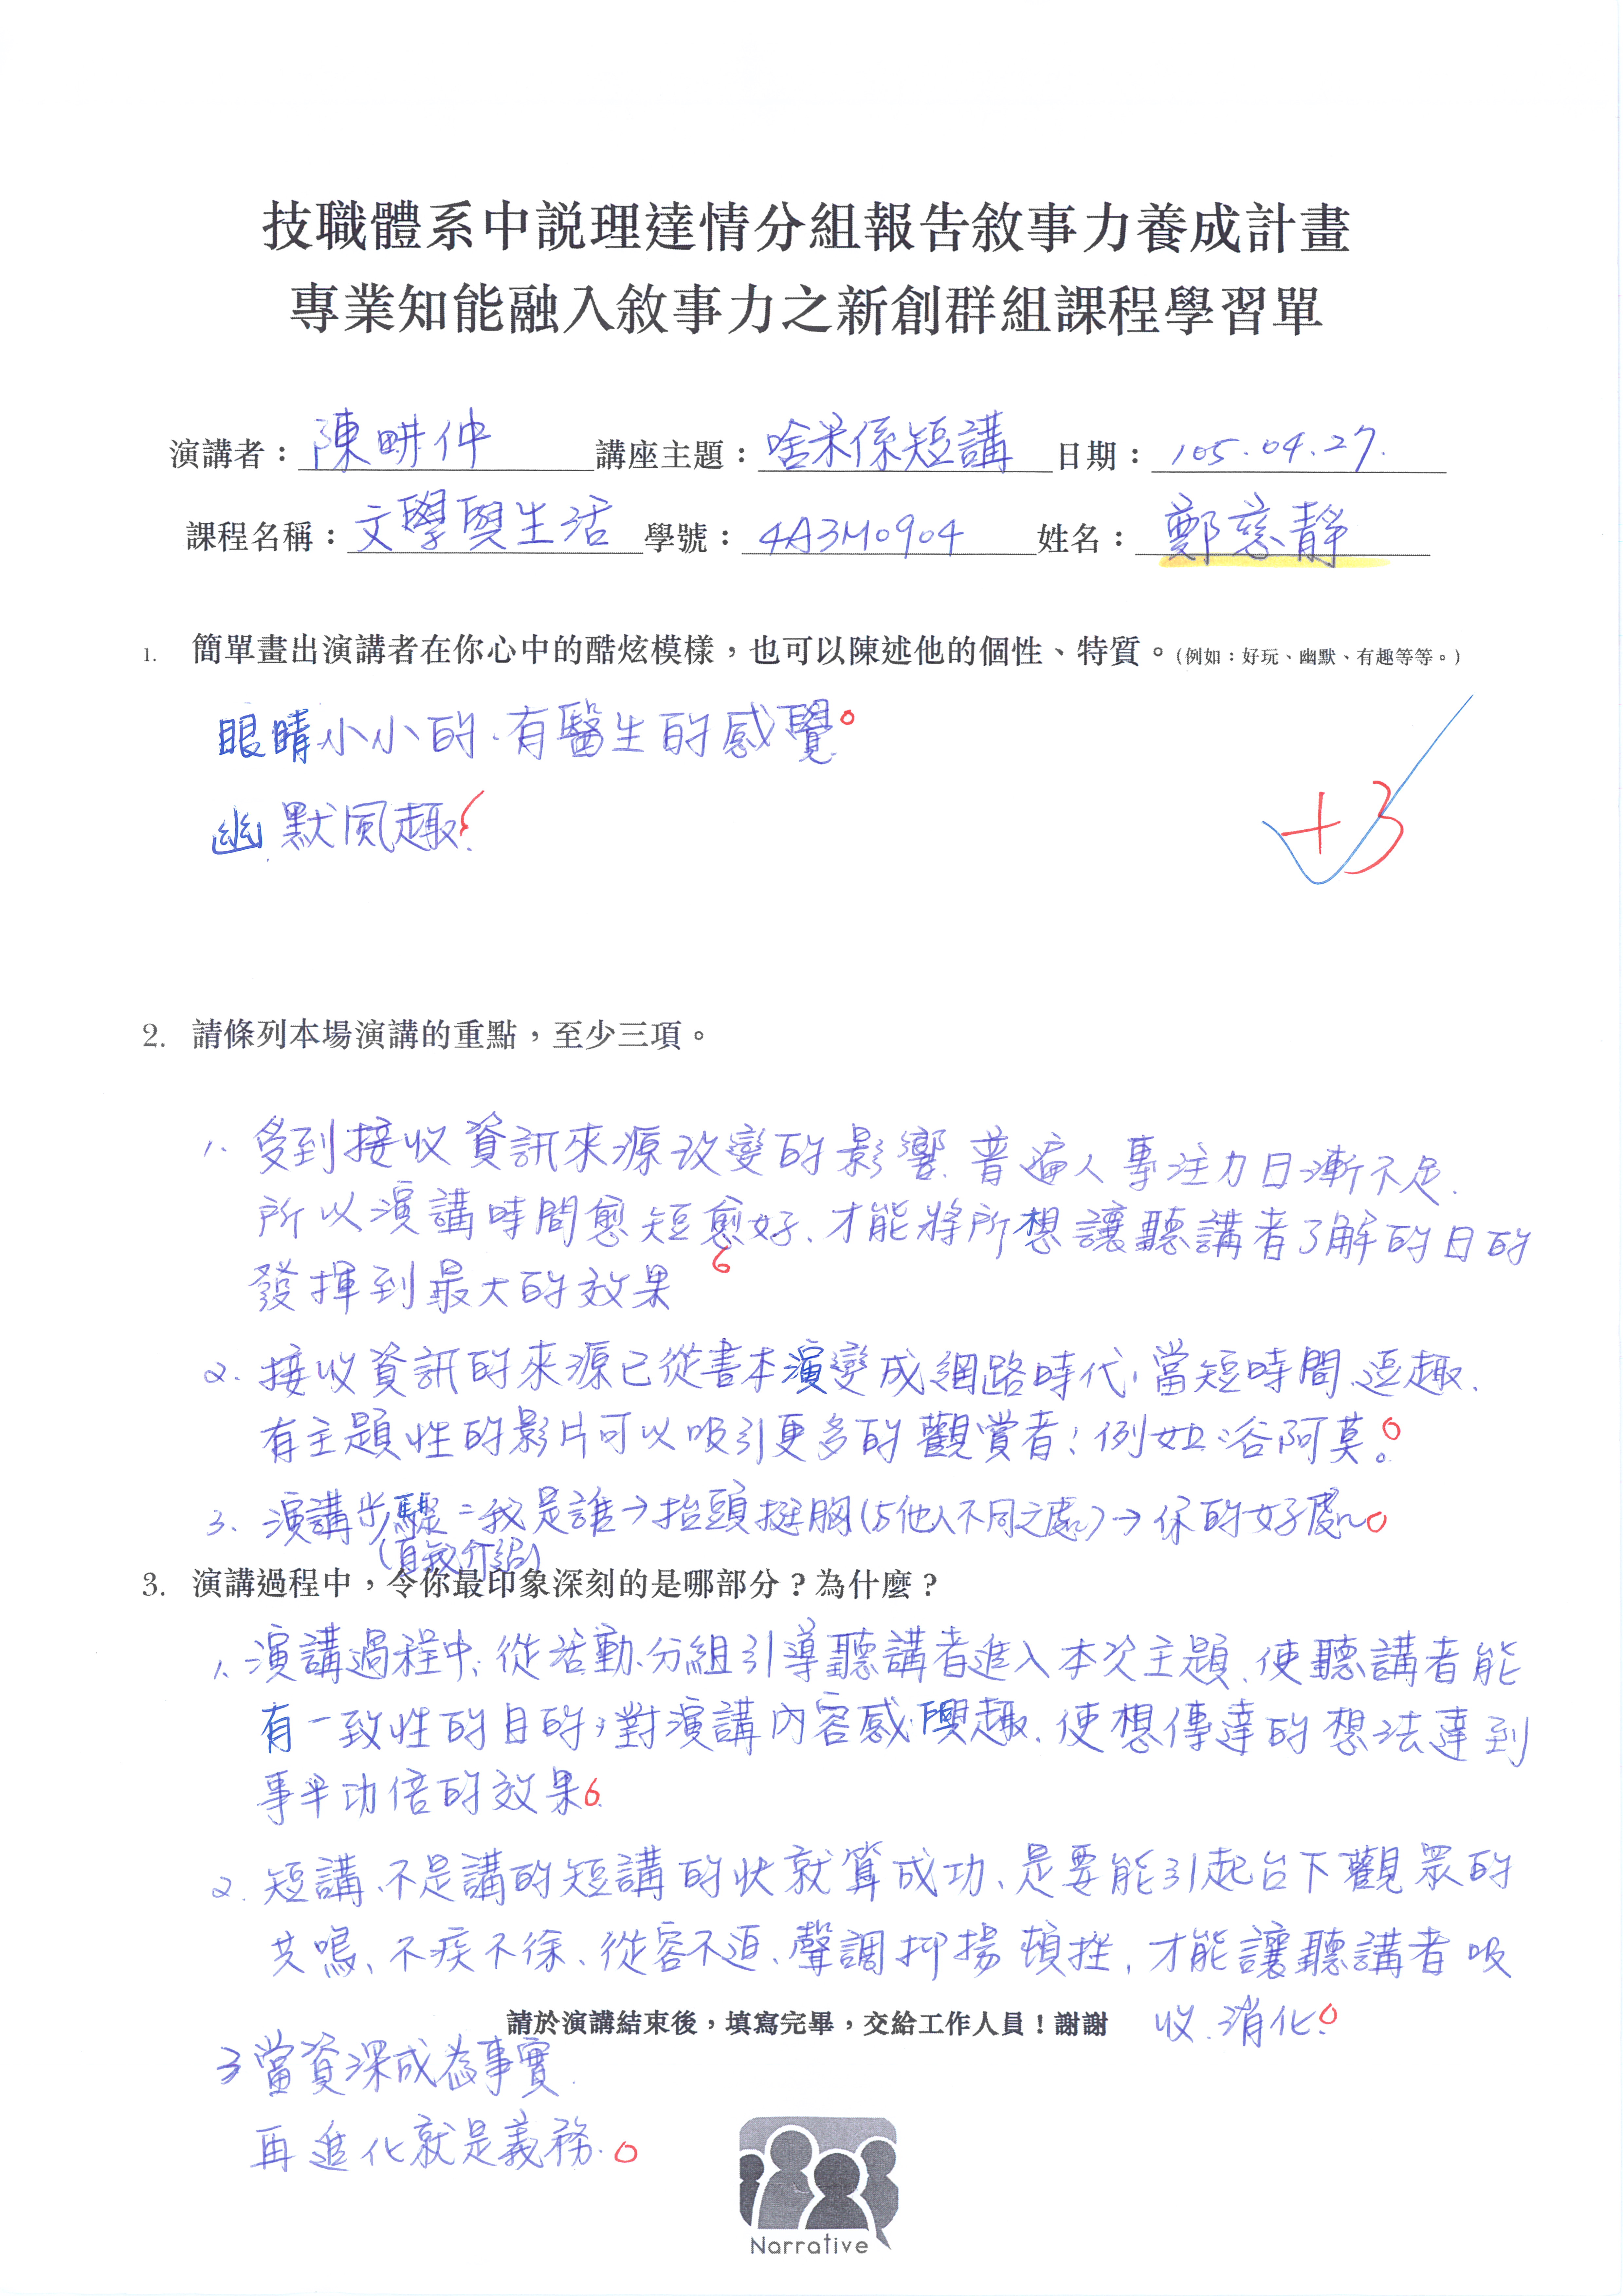 技職體系中說理達情分組報告敘事力養成計畫
專業知能融入敘事力之新創群組課程學習單
演講者：陳畊仲 講座主題：啥米係短講 日期：105.04.27.
課程名稱：文學與生活 學號：4A3M0904 姓名：鄭慈靜
1. 簡單畫出演講者在你心中的酷炫模樣，也可以陳述他的個性、特質。(例如：好玩、幽默、有趣等等。)
眼睛小小的、有醫生的感覺。
幽默風趣！
+3
2. 請條列本場演講的重點，至少三項。
1、受到接收資訊來源改變的影響、普遍人專注力日漸不足、
所以演講時間愈短愈好、才能將所想讓聽講者了解的目的
發揮到最大的效果
2、接收資訊的來源已從書本演變成網路時代，當短時間、逗趣、
有主題性的影片可以吸引更多的觀賞者！例如：谷阿莫。
3、演講步驟=我是誰→抬頭挺胸(与他人不同之處)→你的好處。
(自我介紹)
3. 演講過程中，令你最印象深刻的是哪部分？為什麼？
1、演講過程中，從活動、分組引導聽講者進入本次主題、使聽講者能
有一致性的目的，對演講內容感興趣、使想傳達的想法達到
事半功倍的效果。
2、短講、不是講的短講的快就算成功、是要能引起台下觀眾的
共鳴、不疾不徐、從容不迫、聲調抑揚頓挫、才能讓聽講者吸
請於演講結束後，填寫完畢，交給工作人員！謝謝 收、消化。
3 當資深成為事實、
再進化就是義務。
Narrative